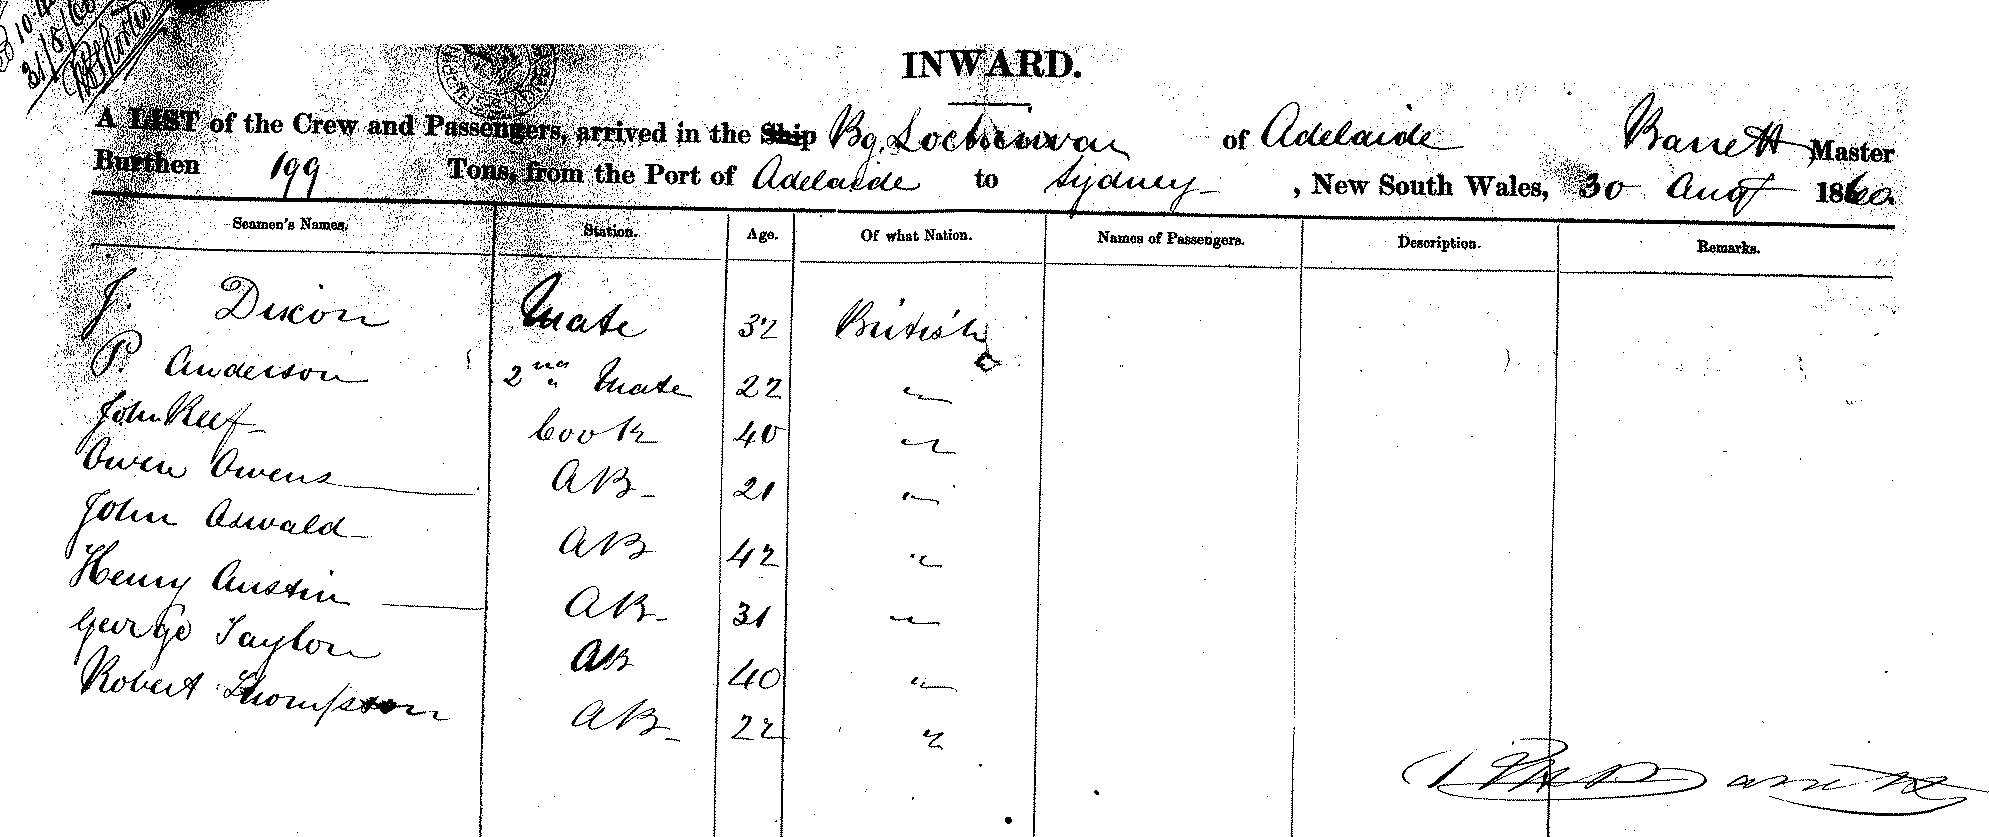 31/8/60
INWARD.
A LIST of the Crew and Passengers, arrived in the Ship Bg. Lochinvar of Adelaide Barrett Master
Burthen 199 Tons, from the Port of Adelaide to Sydney , New South Wales, 30 Augt 1860.
Seamen's Names. Station. Age. Of what Nation. Names of Passengers. Description. Remarks.
J. Dixon Mate 32 British
P. Anderson 2nd Mate 22 "
John Reef Cook 40 "
Owen Owens AB 21 "
John Oswald AB 42 "
Henry Austin AB 31 "
George Taylor AB 40 "
Robert Thompson AB 22 "
Barrett